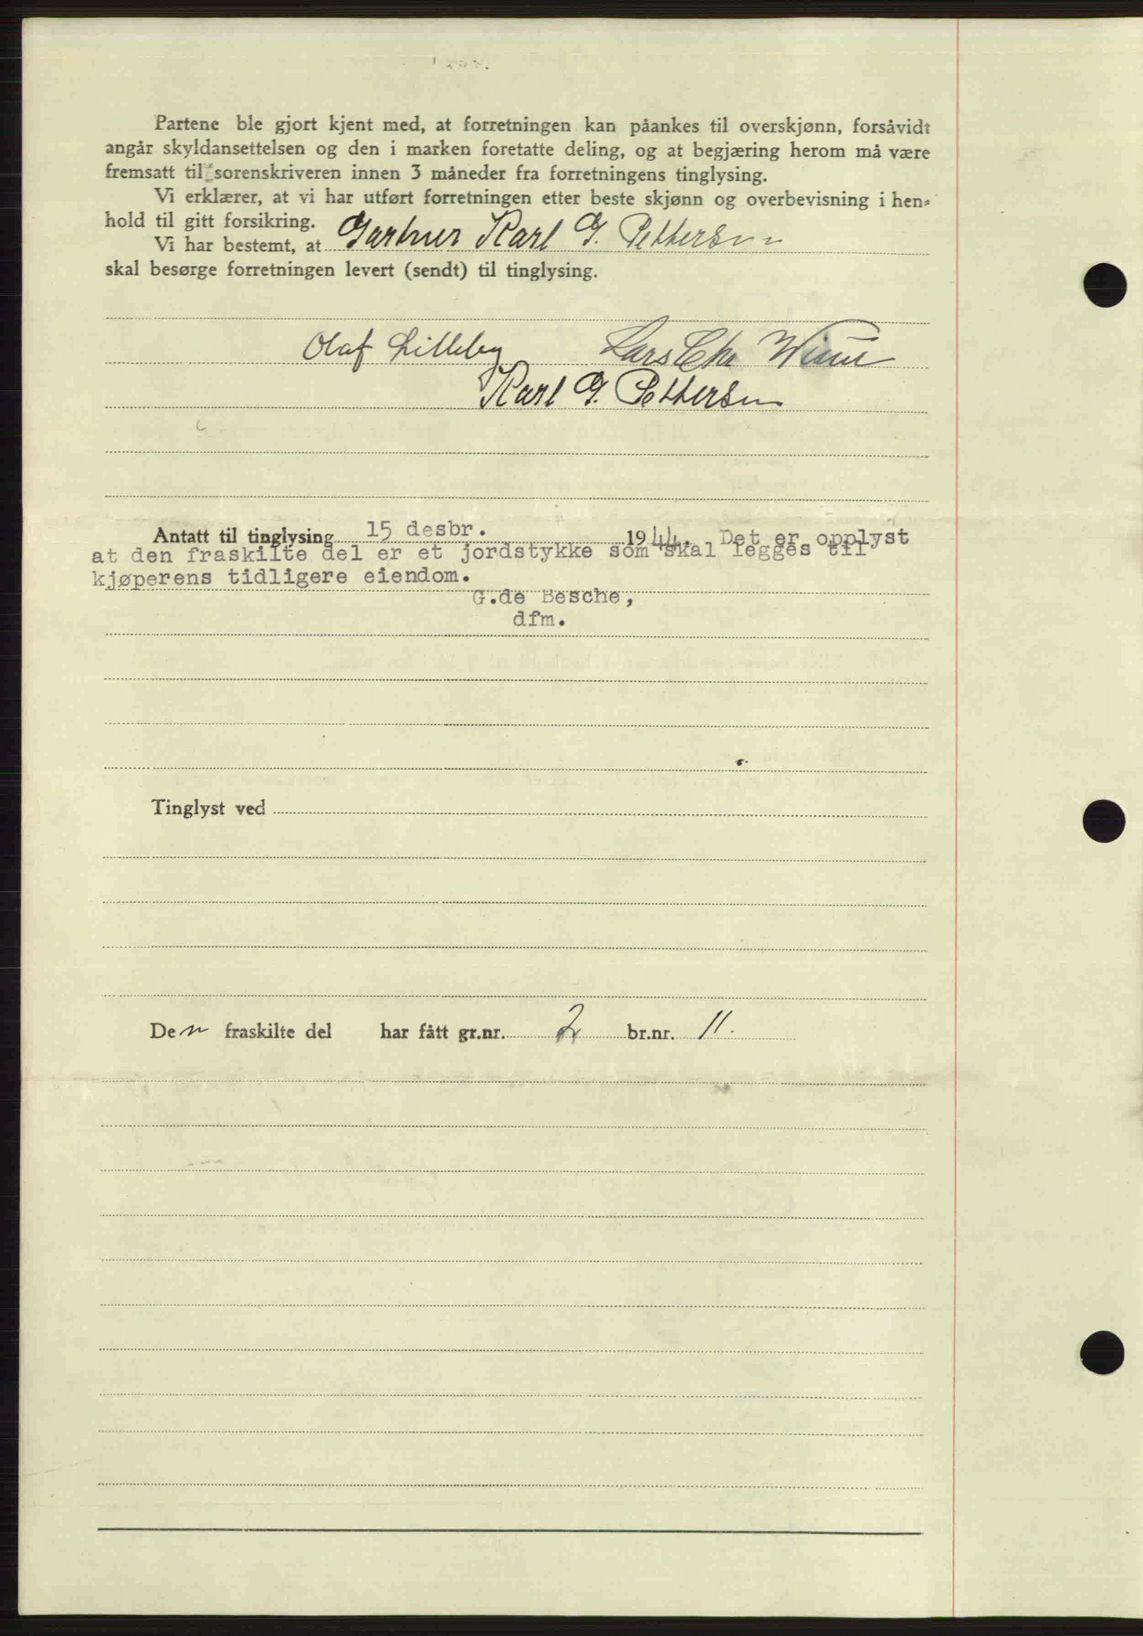 Partene ble gjort kjent med, at forretningen kan påankes til overskjønn, forsåvidt
angår skyldansettelsen og den i marken foretatte deling, og at begjæring herom må være
fremsatt til sorenskriveren innen 3 måneder fra forretningens tinglysing.
Vi erklærer, at vi har utført forretningen etter beste skjønn og overbevisning i hen-
hold til gitt forsikring.
Vi har bestemt, at Gartner Karl G. Pettersen
skal besørge forretningen levert (sendt) til tinglysing.
Olaf Lilleby Lars Chr
Karl G. Pettersen
Antatt til tinglysing 15 desbr. 1944. Det er opplyst
at den fraskilte del er et jordstykke som skal legges til
kjøperens tidligere eiendom.
G.de Besche,
dfm.
Tinglyst ved
Den fraskilte del har fått gr.nr. 2 br.nr. 11.